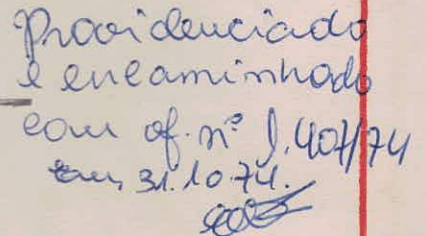 Providenciado
e encaminhado
com of. nº 1.407/74
em, 31.10.74.